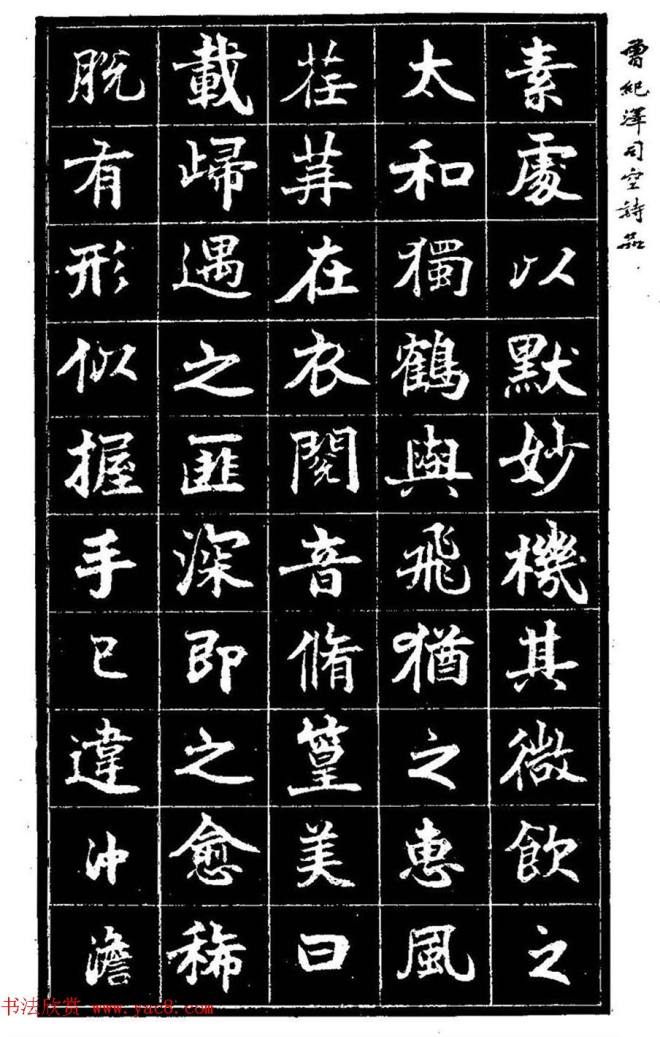 曾紀澤司空詩品
素處以默妙機其微飲之
太和獨鶴與飛猶之惠風
荏苒在衣閱音脩篁美曰
載歸遇之匪深即之愈稀
脫有形似握手已違沖澹
书法欣赏 www.yac8.com